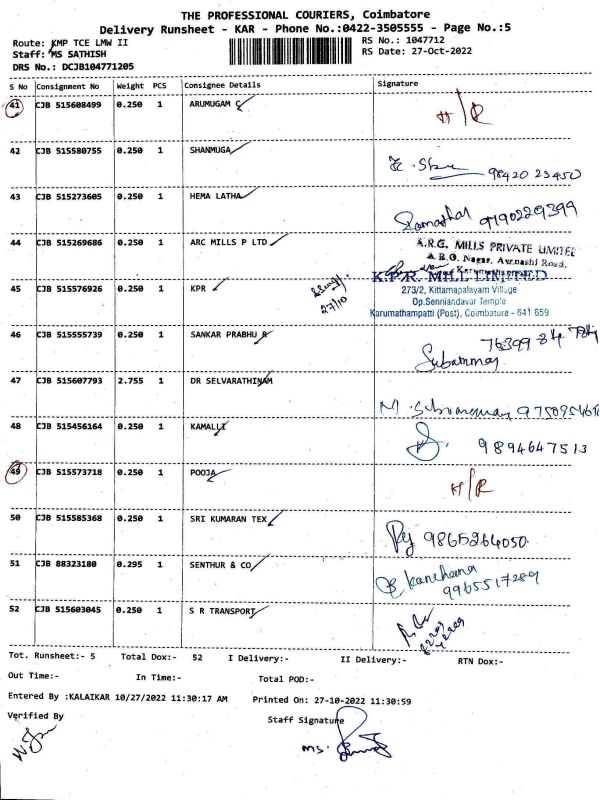 THE PROFESSIONAL COURIERS, Coimbatore
Delivery Runsheet - KAR - Phone No.:0422-3505555 - Page No.:5
Route: KMP TCE LMW II RS No.: 1047712
Staff: MS SATHISH RS Date: 27-Oct-2022
DRS No.: DCJB104771205
S No Consignment No Weight PCS Consignee Details Signature
41 CJB 515608499 0.250 1 ARUMUGAM C H/R
42 CJB 515580755 0.250 1 SHANMUGA
98420 23450
43 CJB 515273605 0.250 1 HEMA LATHA
9790229399
44 CJB 515269686 0.250 1 ARC MILLS P LTD A.R.G. MILLS PRIVATE LIMITED
A.R.G. Nagar, Avinashi Road,
45 CJB 515576926 0.250 1 KPR 27/10 K.P.R. MILL LIMITED
273/2, Kittampalayam Village
Op.Senniandavar Temple
Karumathampatti (Post), Coimbatore - 641 659
46 CJB 515555739 0.250 1 SANKAR PRABHU R
47 CJB 515607793 2.755 1 DR SELVARATHINAM
48 CJB 515456164 0.250 1 KAMALLI
9894647513
49 CJB 515573718 0.250 1 POOJA H/R
50 CJB 515585368 0.250 1 SRI KUMARAN TEX
9865264050
51 CJB 88323180 0.295 1 SENTHUR & CO
Kanchana
9965517289
52 CJB 515603045 0.250 1 S R TRANSPORT
Tot. Runsheet:- 5 Total Dox:- 52 I Delivery:- II Delivery:- RTN Dox:-
Out Time:- In Time:- Total POD:-
Entered By :KALAIKAR 10/27/2022 11:30:17 AM Printed On: 27-10-2022 11:30:59
Verified By Staff Signature
MS.